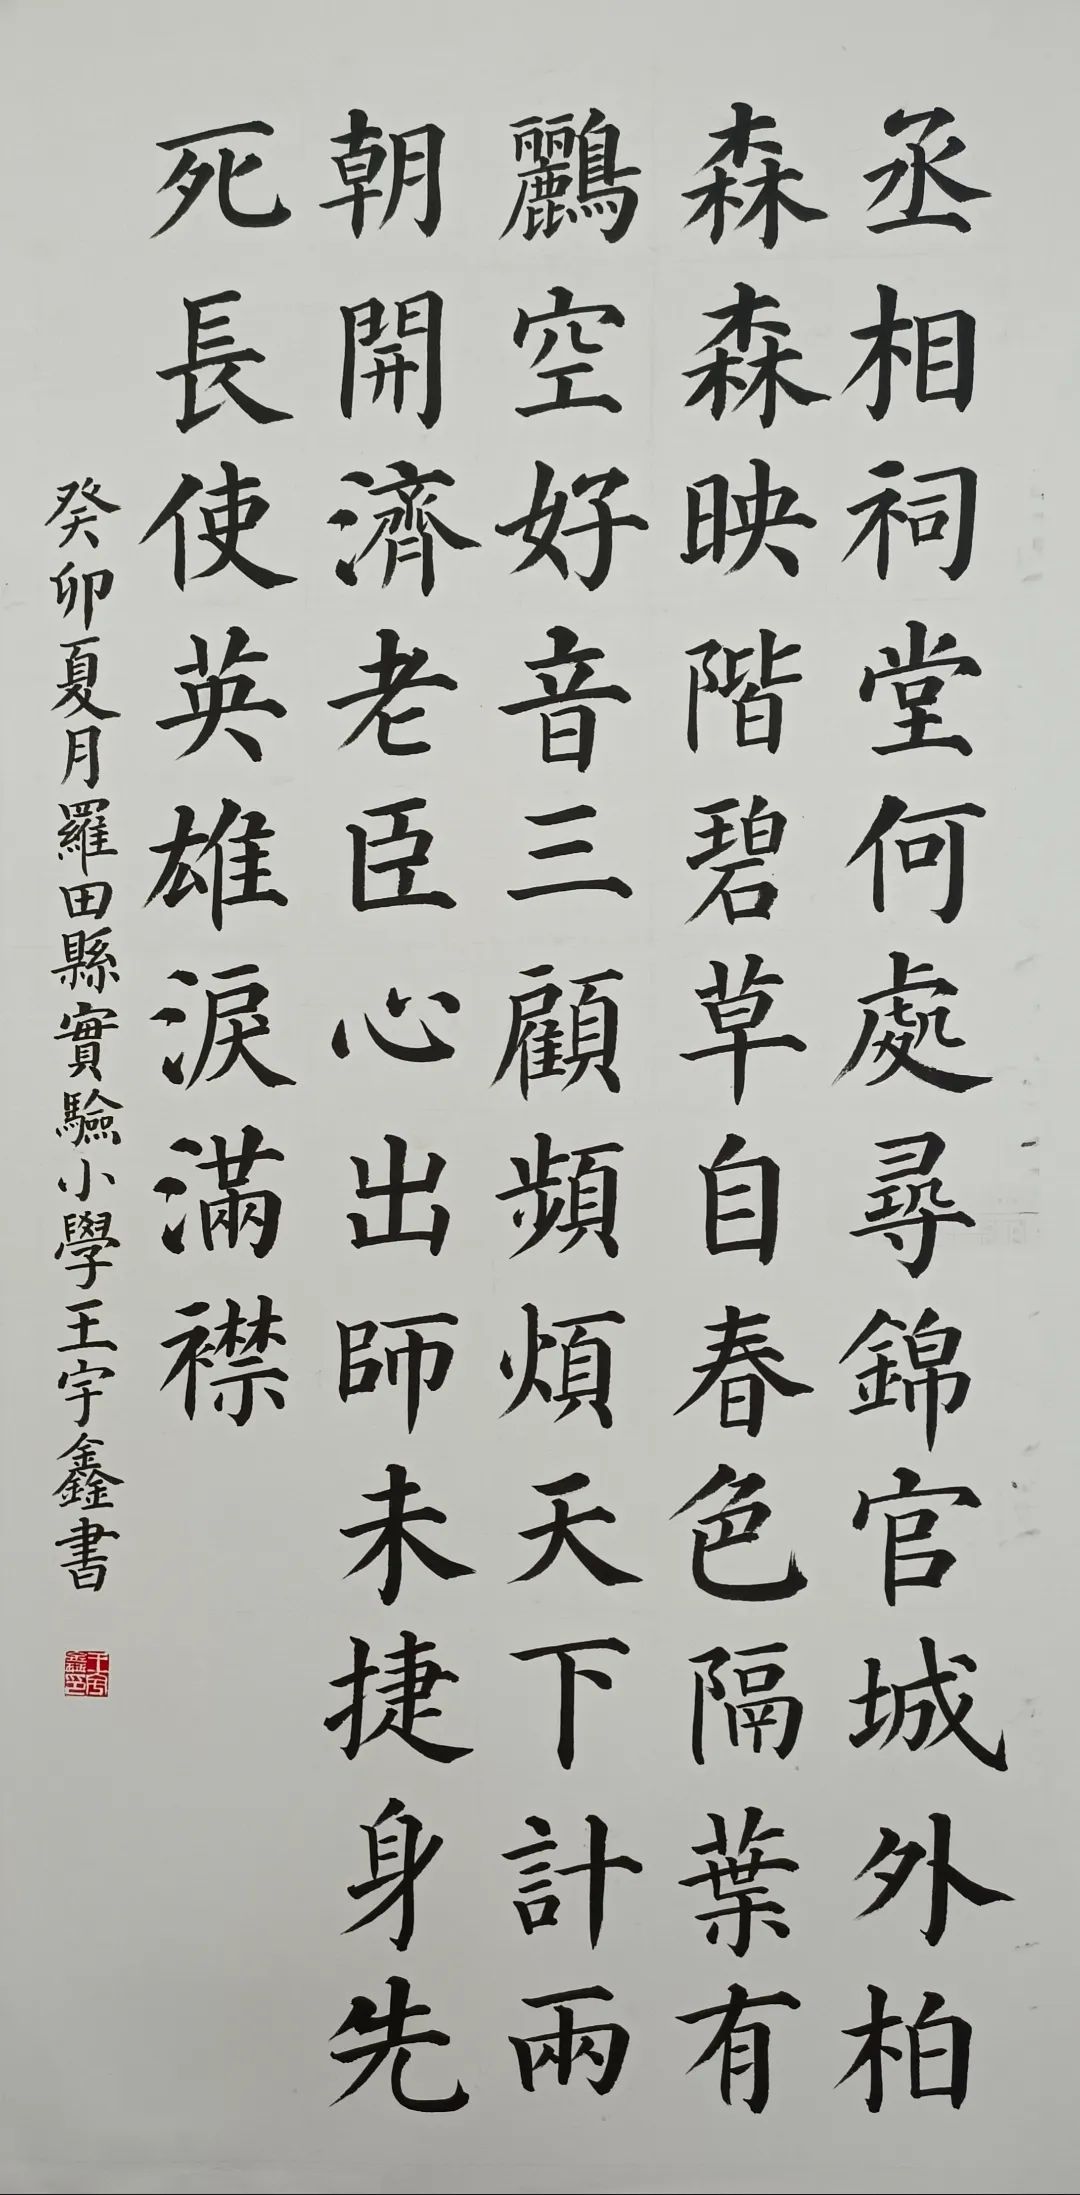 丞相祠堂何處尋錦官城外柏
森森映階碧草自春色隔葉有
鸝空好音三顧頻煩天下計兩
朝開濟老臣心出師未捷身先
死長使英雄淚滿襟
癸卯夏月羅田縣實驗小學王宇鑫書